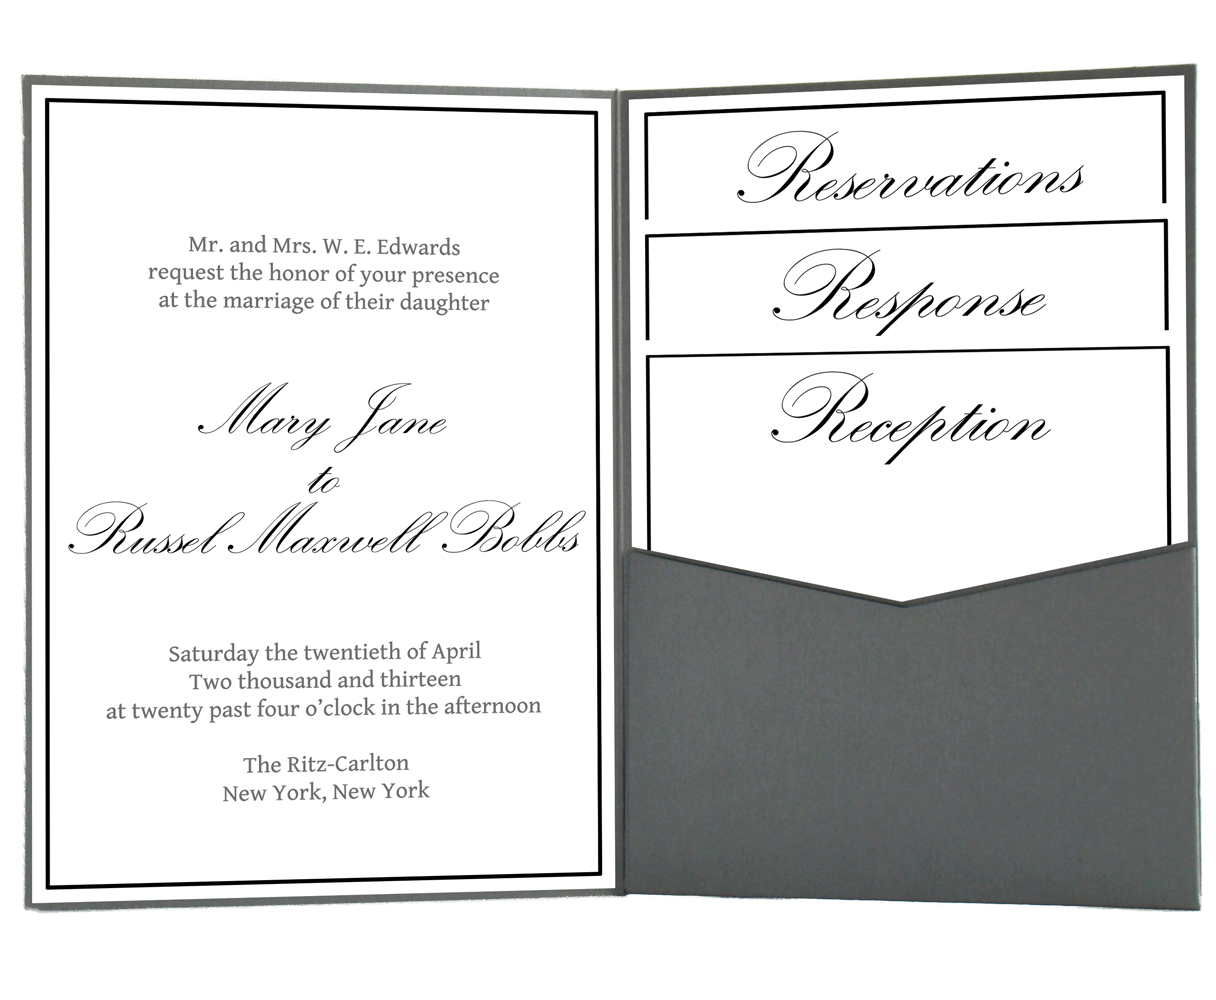 Mr. and Mrs. W. E. Edwards
request the honor of your presence
at the marriage of their daughter
Mary Jane
to
Russel Maxwell Bobbs
Saturday the twentieth of April
Two thousand and thirteen
at twenty past four o’clock in the afternoon
The Ritz-Carlton
New York, New York
Reservations
Response
Reception